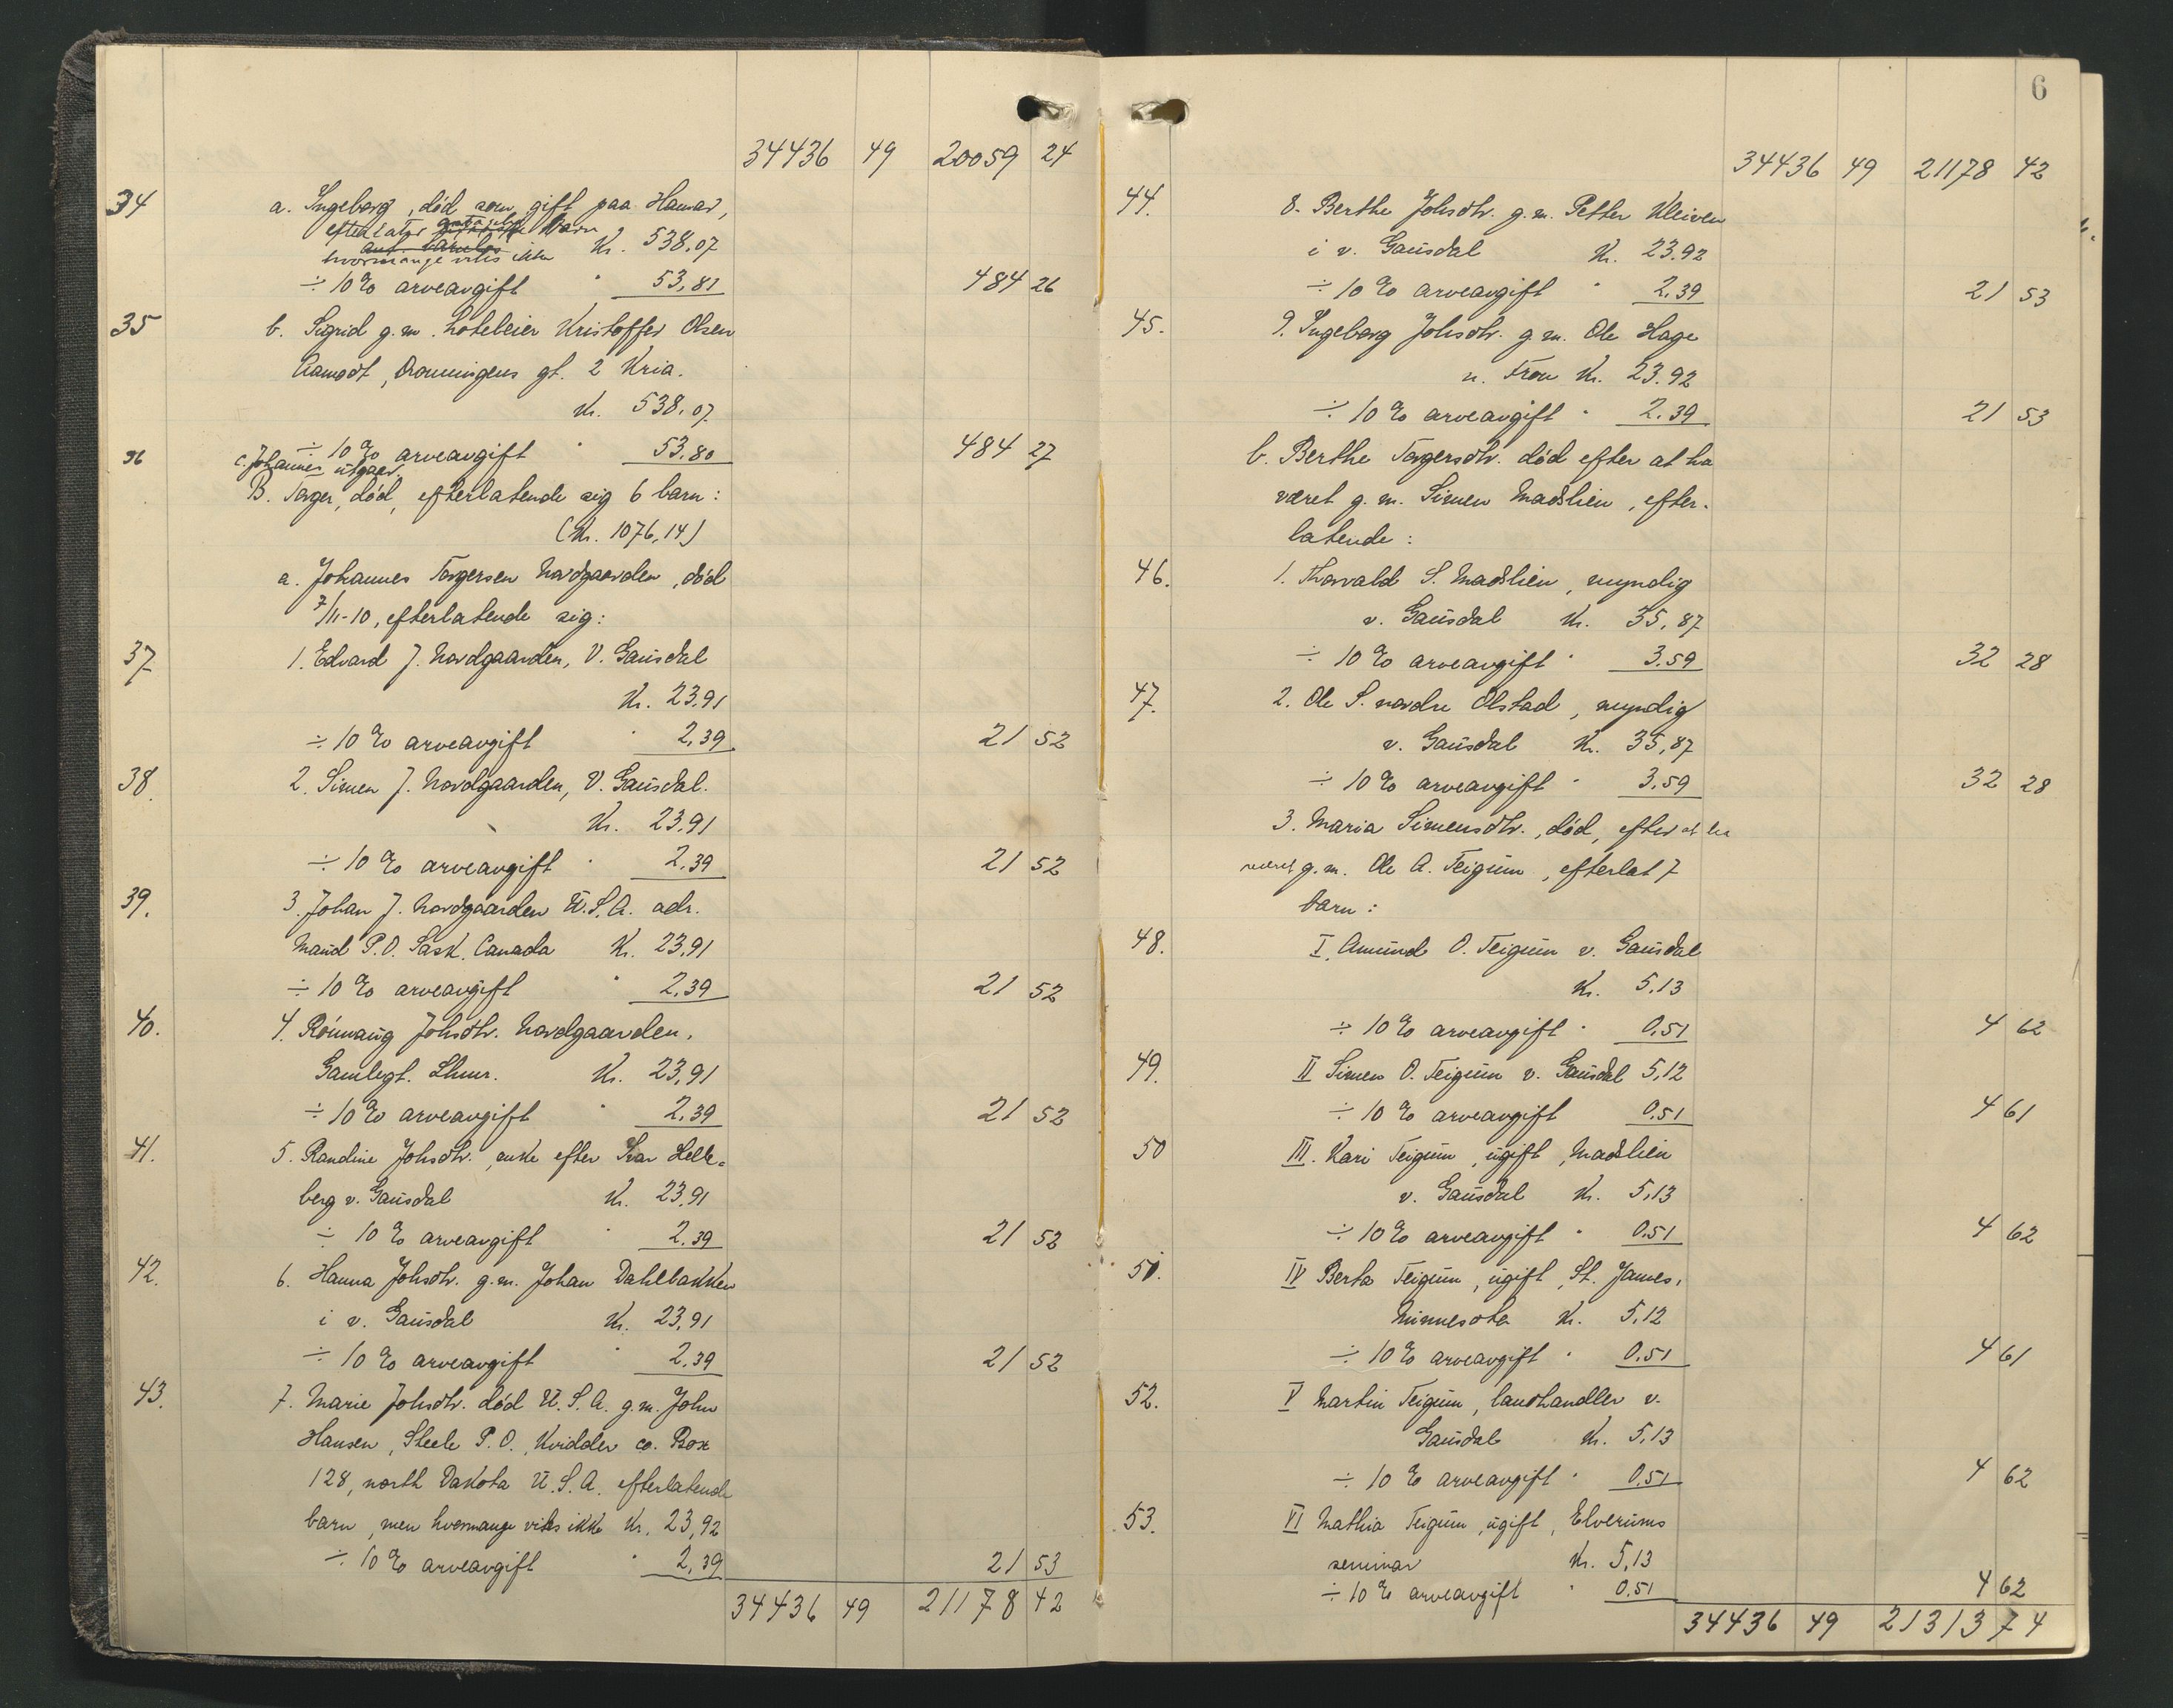 34436 49 20059 24
34 a. Ingeborg, død som gift paa Hamar,
efterlater barn
hvormange vites ikke Kr. 538,07
÷ 10 % arveavgift " 53,81 484 26
35 b. Sigrid g.m. hoteleier Kristoffer Olsen
Aamodt, Dronningens gt. 2 Kria.
Kr. 538,07
÷ 10 % arveavgift " 53,80 484 27
36 c. Johannes utgaar
B. Torger, død, efterlatende sig 6 barn:
(Kr. 1076,14)
a. Johannes Torgersen Nordgaarden, død
7/11-10, efterlatende sig:
37 1. Edvard J. Nordgaarden, V. Gausdal
Kr. 23,91
÷ 10 % arveavgift " 2,39 21 52
38. 2. Simen J. Nordgaarden, V. Gausdal.
Kr. 23,91
÷ 10 % arveavgift " 2,39 21 52
39. 3. Johan J. Nordgaarden U.S.A. adr.
Maud P.O. Sask. Canada Kr. 23,91
÷ 10 % arveavgift " 2,39 21 52
40. 4. Rønnaug Johsdtr. Nordgaarden,
Gamlegt. Lhmr. Kr. 23,91
÷ 10 % arveavgift " 2,39 21 52
41. 5. Randine Johsdtr., enke efter Ivar Helle-
berg v. Gausdal Kr. 23,91
÷ 10 % arveavgift " 2,39 21 52
42. 6. Hanna Johsdtr. g.m. Johan Dahlbakken
i v. Gausdal Kr. 23,91
÷ 10 % arveavgift " 2,39 21 52
43. 7. Marie Johsdtr. død U.S.A. g.m. John
Hansen, Steele P.O., Kvidder co. Box
128, north Dakota U.S.A. efterlatende
barn, men hvormange vites ikke Kr. 23,92
÷ 10 % arveavgift " 2,39 21 53
34436 49 21178 42
6
34436 49 21178 42
44. 8. Berthe Johsdtr. g.m. Petter Kleiven
i v. Gausdal Kr. 23.92
÷ 10 % arveavgift " 2,39 21 53
45. 9. Ingeborg Johsdtr. g.m. Ole Hage
n. Fron Kr. 23.92
÷ 10 % arveavgift " 2.39 21 53
b. Berthe Torgersdtr. død efter at ha
været g.m. Simen Madslien, efter-
latende:
46. 1. Thorvald S. Madslien, myndig
v. Gausdal Kr. 35,87
÷ 10 % arveavgift " 3.59 32 28
47. 2. Ole S. nordre Olstad, myndig
v. Gausdal Kr. 35,87
÷ 10 % arveavgift " 3,59 32 28
3. Maria Simensdtr., død, efter at ha
været g.m. Ole A. Teigum, efterlat 7
barn:
48. I. Amund O. Teigum v. Gausdal
Kr. 5,13
÷ 10 % arveavgift " 0,51 4 62
49. II Simen O. Teigum v. Gausdal 5,12
÷ 10 % arveavgift 0,51 4 61
50 III. Kari Teigum, ugift, Madslien
v. Gausdal Kr. 5,13
÷ 10 % arveavgift " 0.51 4 62
51. IV Berta Teigum, ugift, St. James,
Minnesota Kr. 5,12
÷ 10 % arveavgift " 0.51 4 61
52. V Martin Teigum, landhandler v.
Gausdal Kr. 5,13
÷ 10 % arveavgift " 0.51 4 62
53. VI Mathia Teigum, ugift, Elverums
seminar Kr. 5,13
÷ 10 % arveavgift " 0.51 4 62
34436 49 21313 74